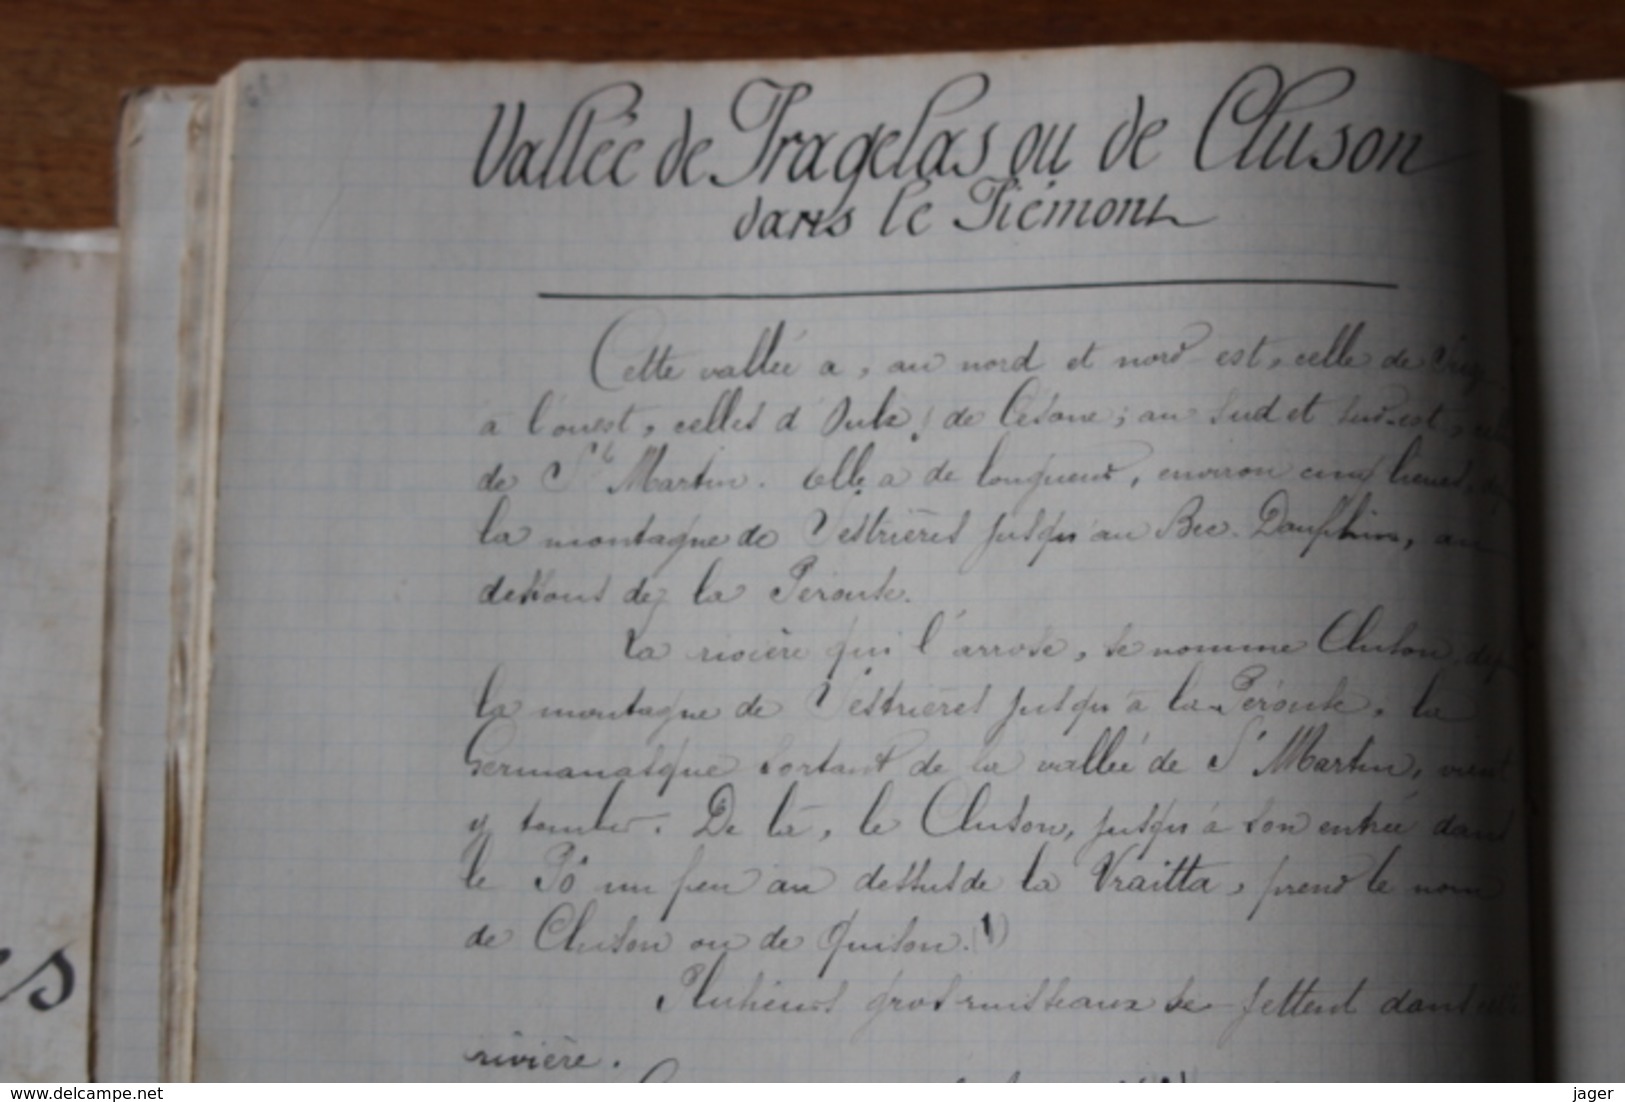 Vallée de Pragelas ou de Cluson
dans le Piémont
Cette vallée a, au nord et nord est, celle de
à l'ouest, celles d'Oulx, de Césane; au Sud et Sud-est,
de St Martin. Elle a de longueur, environ cinq lieues,
la montagne de Sestrières jusqu'au Bec-Dauphin, au
dessous de la Pérouse.
La rivière qui l'arrose, se nomme Cluson,
la montagne de Sestrières jusqu'à la Pérouse, la
Germanasque sortant de la vallée de St Martin, vient
y tomber. De là, le Cluson, jusqu'à son entrée dans
le Pô un peu au dessus de la Vraitta, prend le nom
de Cluson ou de Quison. (1)
Plusieurs gros ruisseaux se jettent dans cette
rivière.
es
www.delcampe.net
jager